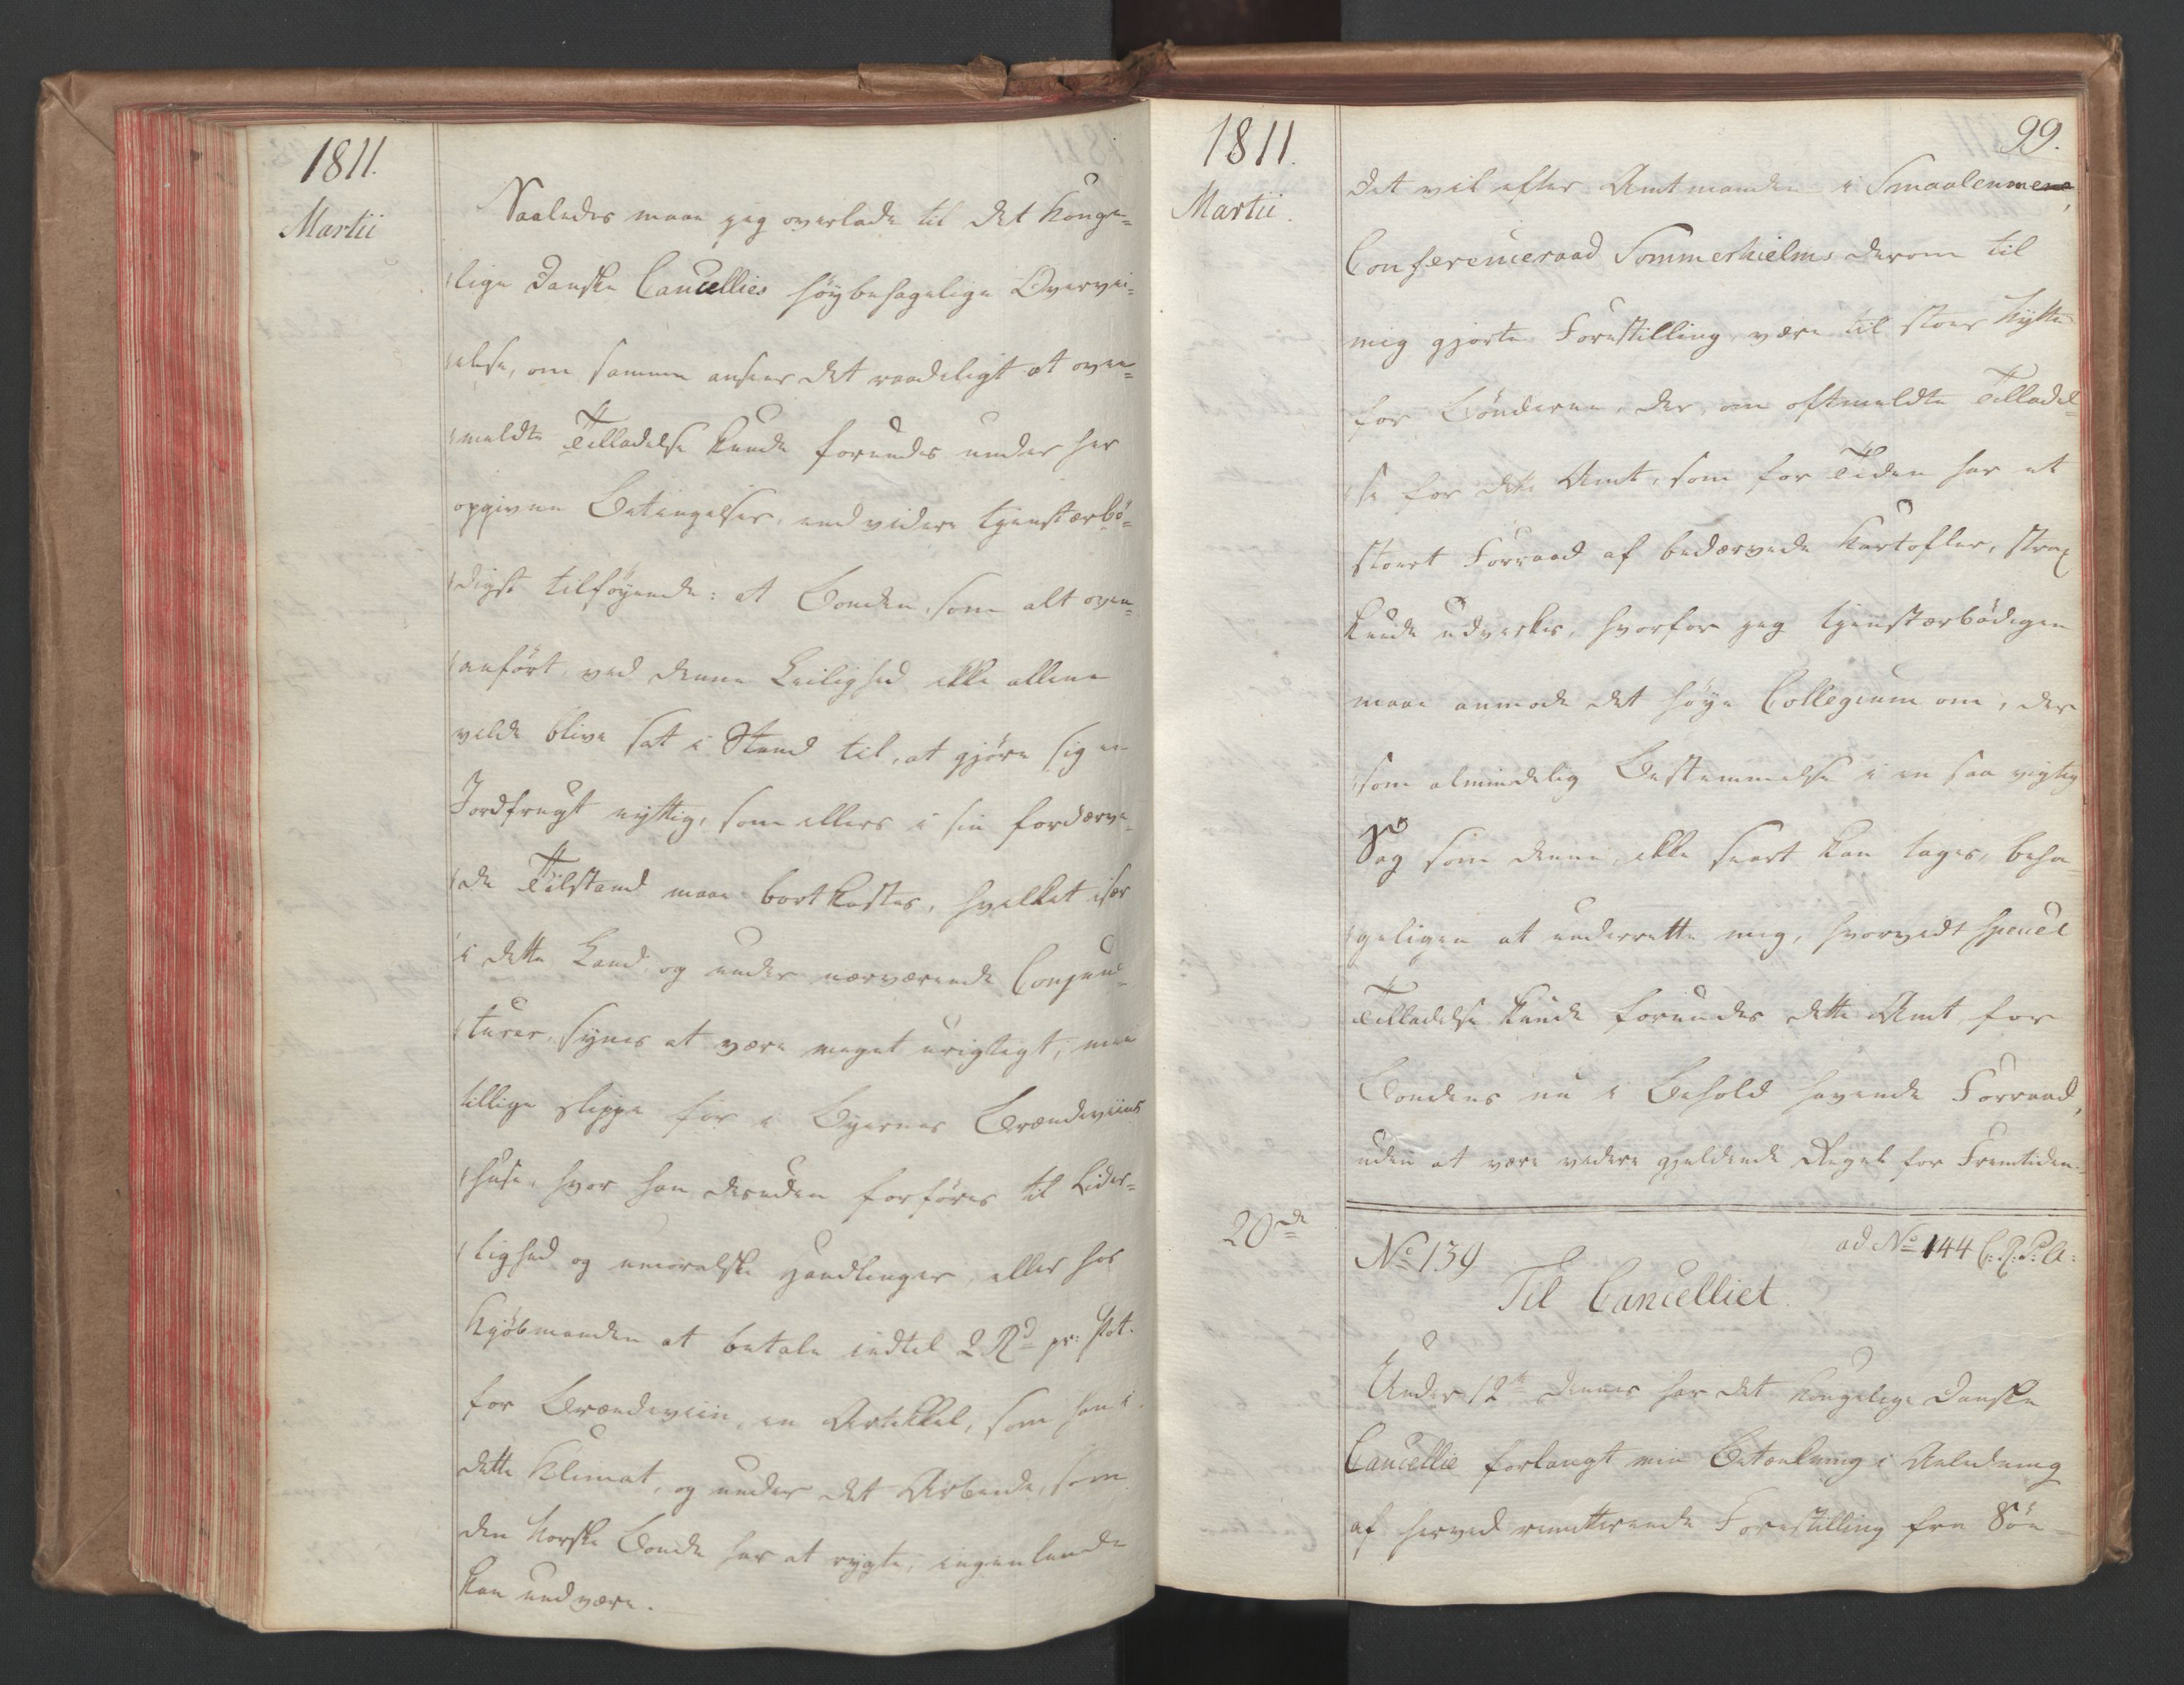 1811.
Martii
Saaledes maae jeg overlade til det Konge=
lige Danske Cancellies høybehagelige Overvei=
else, om samme ansees det raadeligt at oven=
meldte Tilladelse kunde forundes under her
opgivne Betingelser, end videre tjenstærbö=
digst tilföyende: at Bonden, som alt oven=
anfört, ved denne Leilighed ikke allene
vilde blive sat i Stand til, at gjöre sig en
Jordfrugt nyttig, som ellers i sin fordærve=
de Tilstand maae bortkastes, hvilket især
i dette Land og under nærværende Conjunc=
turer, synes at være meget urigtigt, men
tillige slippe for i Byernes Brændeviins
huse, hvor han desuden forföres til Lider=
lighed og umoralske Handlinger, eller hos
Kjöbmanden at betale indtil 2 Rd pr: Pot.
for Brændeviin, en Artikkel, som han i
dette Klimat, og under det Arbeide, som
den Norske Bonde har at rygte, ingenlunde
kan undvære.
1811.
Martii.
99.
Det vil efter Amtmanden i Smaalenmene,
Conferenceraad Sommerhielms derom til
mig gjorte Forestilling være til stoer Nytte
for Bönderne, der, om oftmeldte Tilladel=
se for dette Amt, som for Tiden har et
stoert Forraad af bedærvede Kartofler, strax
kunde udvirkes, hvorfor jeg tjenstærbödigen
maae anmode det høye Collegium om, der
som almindelig Bestemmelse i en saa vigtig
Sag som denne, ikke snart kan tages, beha=
geligen at underrette mig, hvorvidt speciel
Tilladelse kunde forundes dette Amt for
Bondens nu i Behold havende Forraad,
uden at være videre gjeldende Regel for Fremtiden.
20de
No 139
ad No 144 C: R: P: A:
Til Cancelliet.
Under 12te dennes har det Kongelige Danske
Cancellie forlangt min Betænkning i Anledning
af herved remitterende Forestilling fra Sön